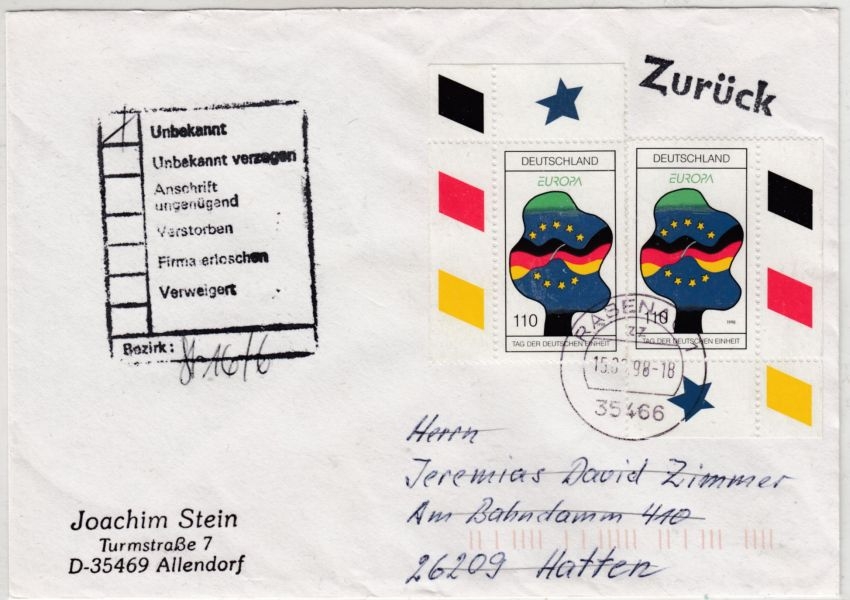 Zurück
Unbekannt
Unbekannt verzogen
Anschrift
ungenügend
Verstorben
Firma erloschen
Verweigert
Bezirk:
DEUTSCHLAND
EUROPA
110
TAG DER DEUTSCHEN EINHEIT
DEUTSCHLAND
EUROPA
110
1998
TAG DER DEUTSCHEN EINHEIT
zz
98-18
35466
Herrn
Jeremias David Zimmer
Am Bahndamm 410
26209 Hatten
Joachim Stein
Turmstraße 7
D-35469 Allendorf